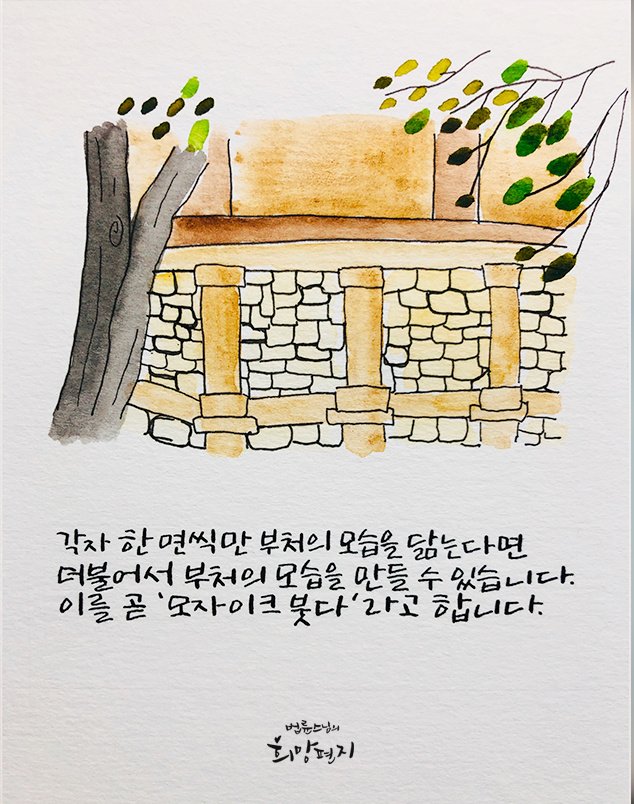 각자 한 면씩만 부처의 모습을 닮는다면
더불어서 부처의 모습을 만들 수 있습니다.
이를 곧 '모자이크 붓다'라고 합니다.
법륜스님의
희망편지